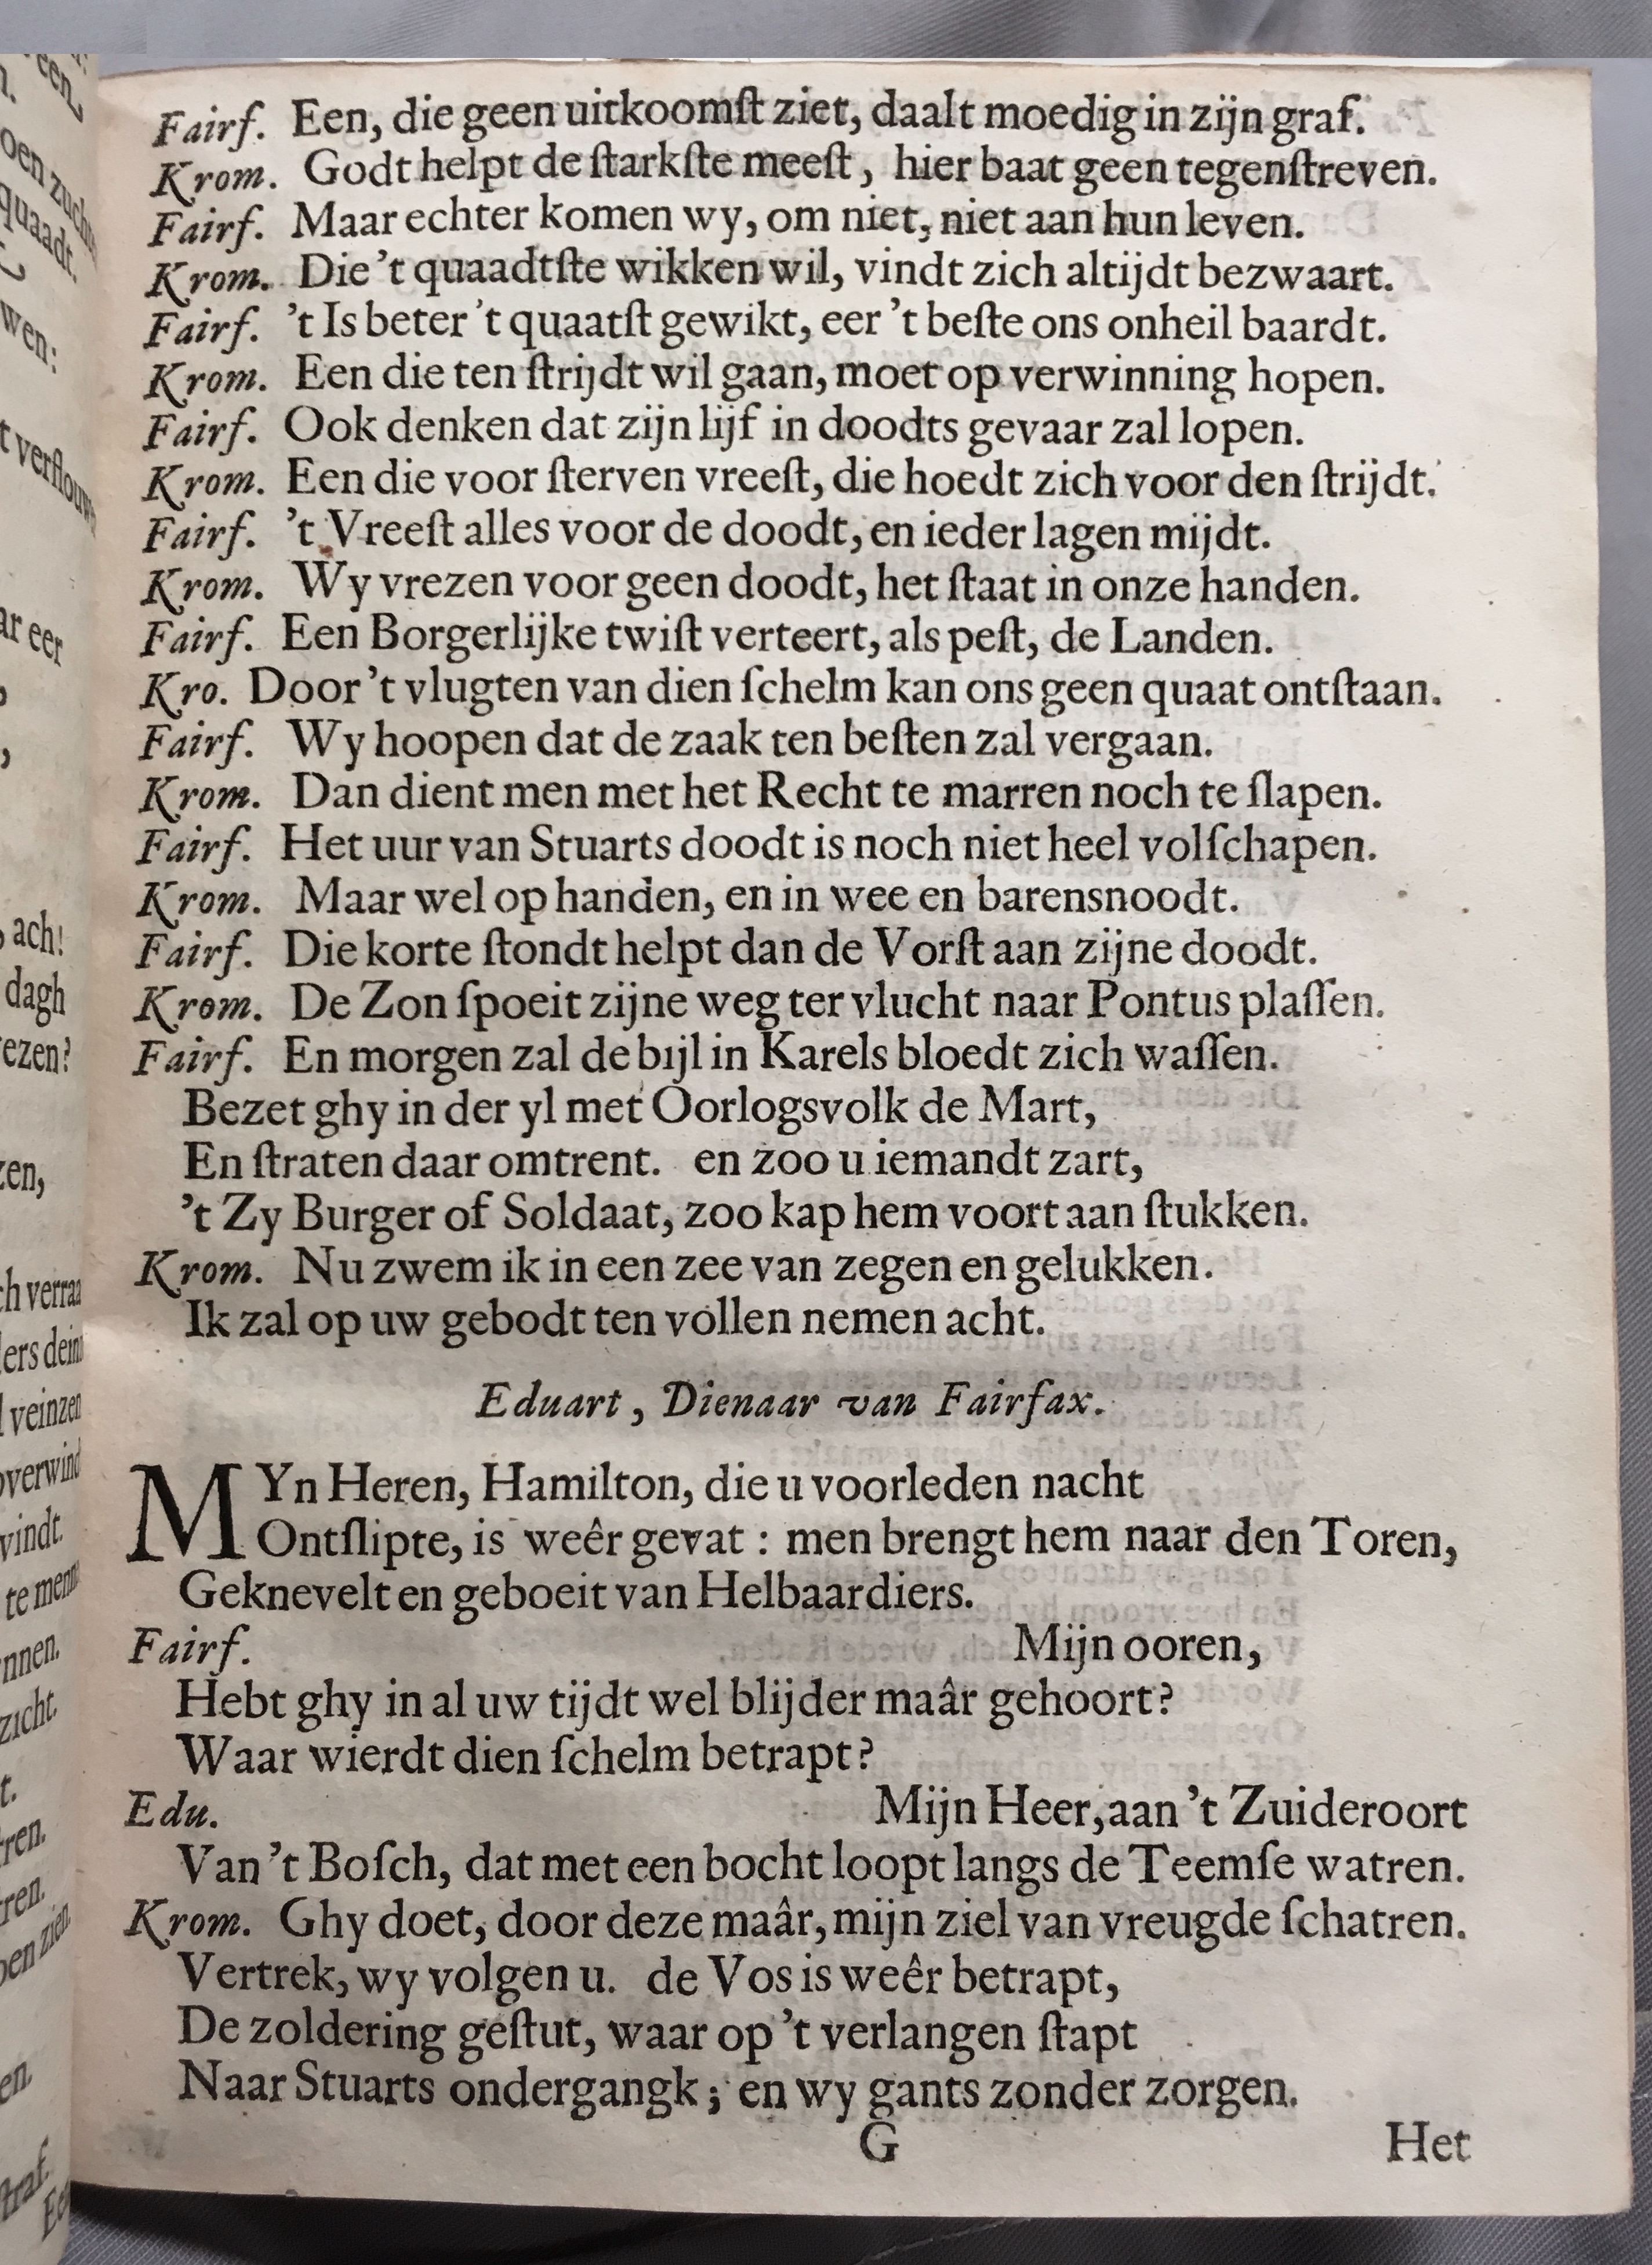 Fairf. Een, die geen uitkoomſt ziet, daalt moedig in zijn graf.
Krom. Godt helpt de ſtarkſte meeſt, hier baat geen tegenſtreven.
Fairf. Maar echter komen wy, om niet, niet aan hun leven.
Krom. Die 't quaadtſte wikken wil, vindt zich altijdt bezwaart.
Fairf. 't Is beter 't quaatſt gewikt, eer 't beſte ons onheil baardt.
Krom. Een die ten ſtrijdt wil gaan, moet op verwinning hopen.
Fairf. Ook denken dat zijn lijf in doodts gevaar zal lopen.
Krom. Een die voor ſterven vreeſt, die hoedt zich voor den ſtrijdt.
Fairf. 't Vreeſt alles voor de doodt, en ieder lagen mijdt.
Krom. Wy vrezen voor geen doodt, het ſtaat in onze handen.
Fairf. Een Borgerlijke twiſt verteert, als peſt, de Landen.
Kro. Door 't vlugten van dien ſchelm kan ons geen quaat ontſtaan.
Fairf. Wy hoopen dat de zaak ten beſten zal vergaan.
Krom. Dan dient men met het Recht te marren noch te ſlapen.
Fairf. Het uur van Stuarts doodt is noch niet heel volſchapen.
Krom. Maar wel op handen, en in wee en barensnoodt.
Fairf. Die korte ſtondt helpt dan de Vorſt aan zijne doodt.
Krom. De Zon ſpoeit zijne weg ter vlucht naar Pontus plaſſen.
Fairf. En morgen zal de bijl in Karels bloedt zich waſſen.
Bezet ghy in der yl met Oorlogsvolk de Mart,
En ſtraten daar omtrent. en zoo u iemandt zart,
't Zy Burger of Soldaat, zoo kap hem voort aan ſtukken.
Krom. Nu zwem ik in een zee van zegen en gelukken.
Ik zal op uw gebodt ten vollen nemen acht.
Eduart, Dienaar van Fairfax.
MYn Heren, Hamilton, die u voorleden nacht
Ontſlipte, is weêr gevat: men brengt hem naar den Toren,
Geknevelt en geboeit van Helbaardiers.
Fairf. Mijn ooren,
Hebt ghy in al uw tijdt wel blijder maâr gehoort?
Waar wierdt dien ſchelm betrapt?
Edu. Mijn Heer, aan 't Zuideroort
Van 't Boſch, dat met een bocht loopt langs de Teemſe watren.
Krom. Ghy doet, door deze maâr, mijn ziel van vreugde ſchatren.
Vertrek, wy volgen u. de Vos is weêr betrapt,
De zoldering geſtut, waar op 't verlangen ſtapt
Naar Stuarts ondergangk; en wy gants zonder zorgen.
G Het